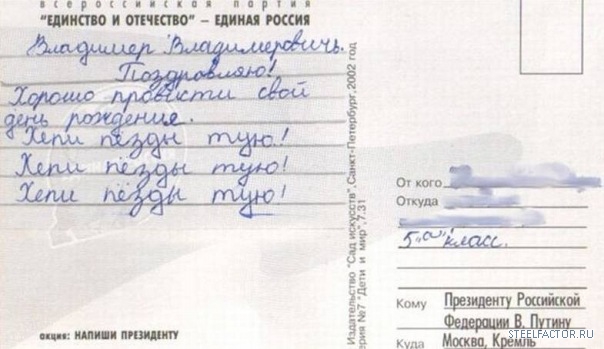 всероссийская партия
"ЕДИНСТВО И ОТЕЧЕСТВО" – ЕДИНАЯ РОССИЯ
Владимер Владимеровичь.
Поздравляю!
Хорошо провисти свой
день рождения.
Хепи пёзды тую!
Хепи пёзды тую!
Хепи пёзды тую!
акция: НАПИШИ ПРЕЗИДЕНТУ
Издательство "Сад искусств", Санкт-Петербург, 2002 год
ерия №7 "Дети и мир", 7.31
От кого
Откуда
5 "а" класс.
Кому Президенту Российской
Федерации В. Путину
Куда Москва, Кремль
STEELFACTOR.RU